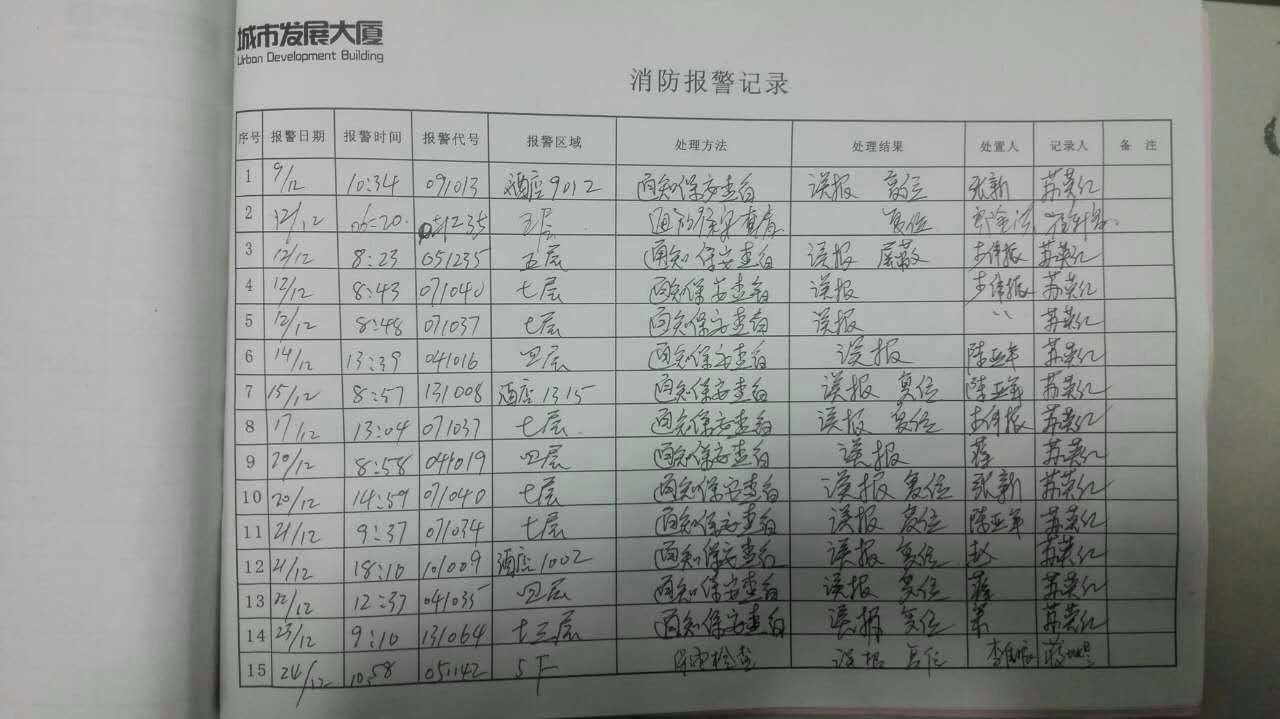 城市发展大厦
Urban Development Building
消防报警记录
序号 报警日期 报警时间 报警代号 报警区域 处理方法 处理结果 处置人 记录人 备 注
1 9/12 10:34 091013 酒店9012 通知保安查看 误报 复位 张新 苏英红
2 12/12 06:20 051235 五层 复位
3 12/12 8:23 051235 五层 通知保安查看 误报 屏蔽 苏英红
4 12/12 8:43 071040 七层 通知保安查看 误报 苏英红
5 12/12 8:48 071037 七层 通知保安查看 误报 〃 苏英红
6 14/12 13:39 041016 四层 通知保安查看 误报 陈亚军 苏英红
7 15/12 8:57 131008 酒店1315 通知保安查看 误报 复位 陈亚军 苏英红
8 17/12 13:04 071037 七层 通知保安查看 误报 复位 苏英红
9 20/12 8:58 041019 四层 通知保安查看 误报 薛 苏英红
10 20/12 14:59 071040 七层 通知保安查看 误报 复位 张新 苏英红
11 21/12 9:37 071034 七层 通知保安查看 误报 复位 陈亚军 苏英红
12 21/12 18:10 101009 酒店1002 通知保安查看 误报 复位 赵 苏英红
13 22/12 12:37 041035 四层 通知保安查看 误报 复位 薛 苏英红
14 23/12 9:10 131064 十三层 通知保安查看 误报 复位 苏英红
15 24/12 10:58 051142 5F 保安检查 误报 复位